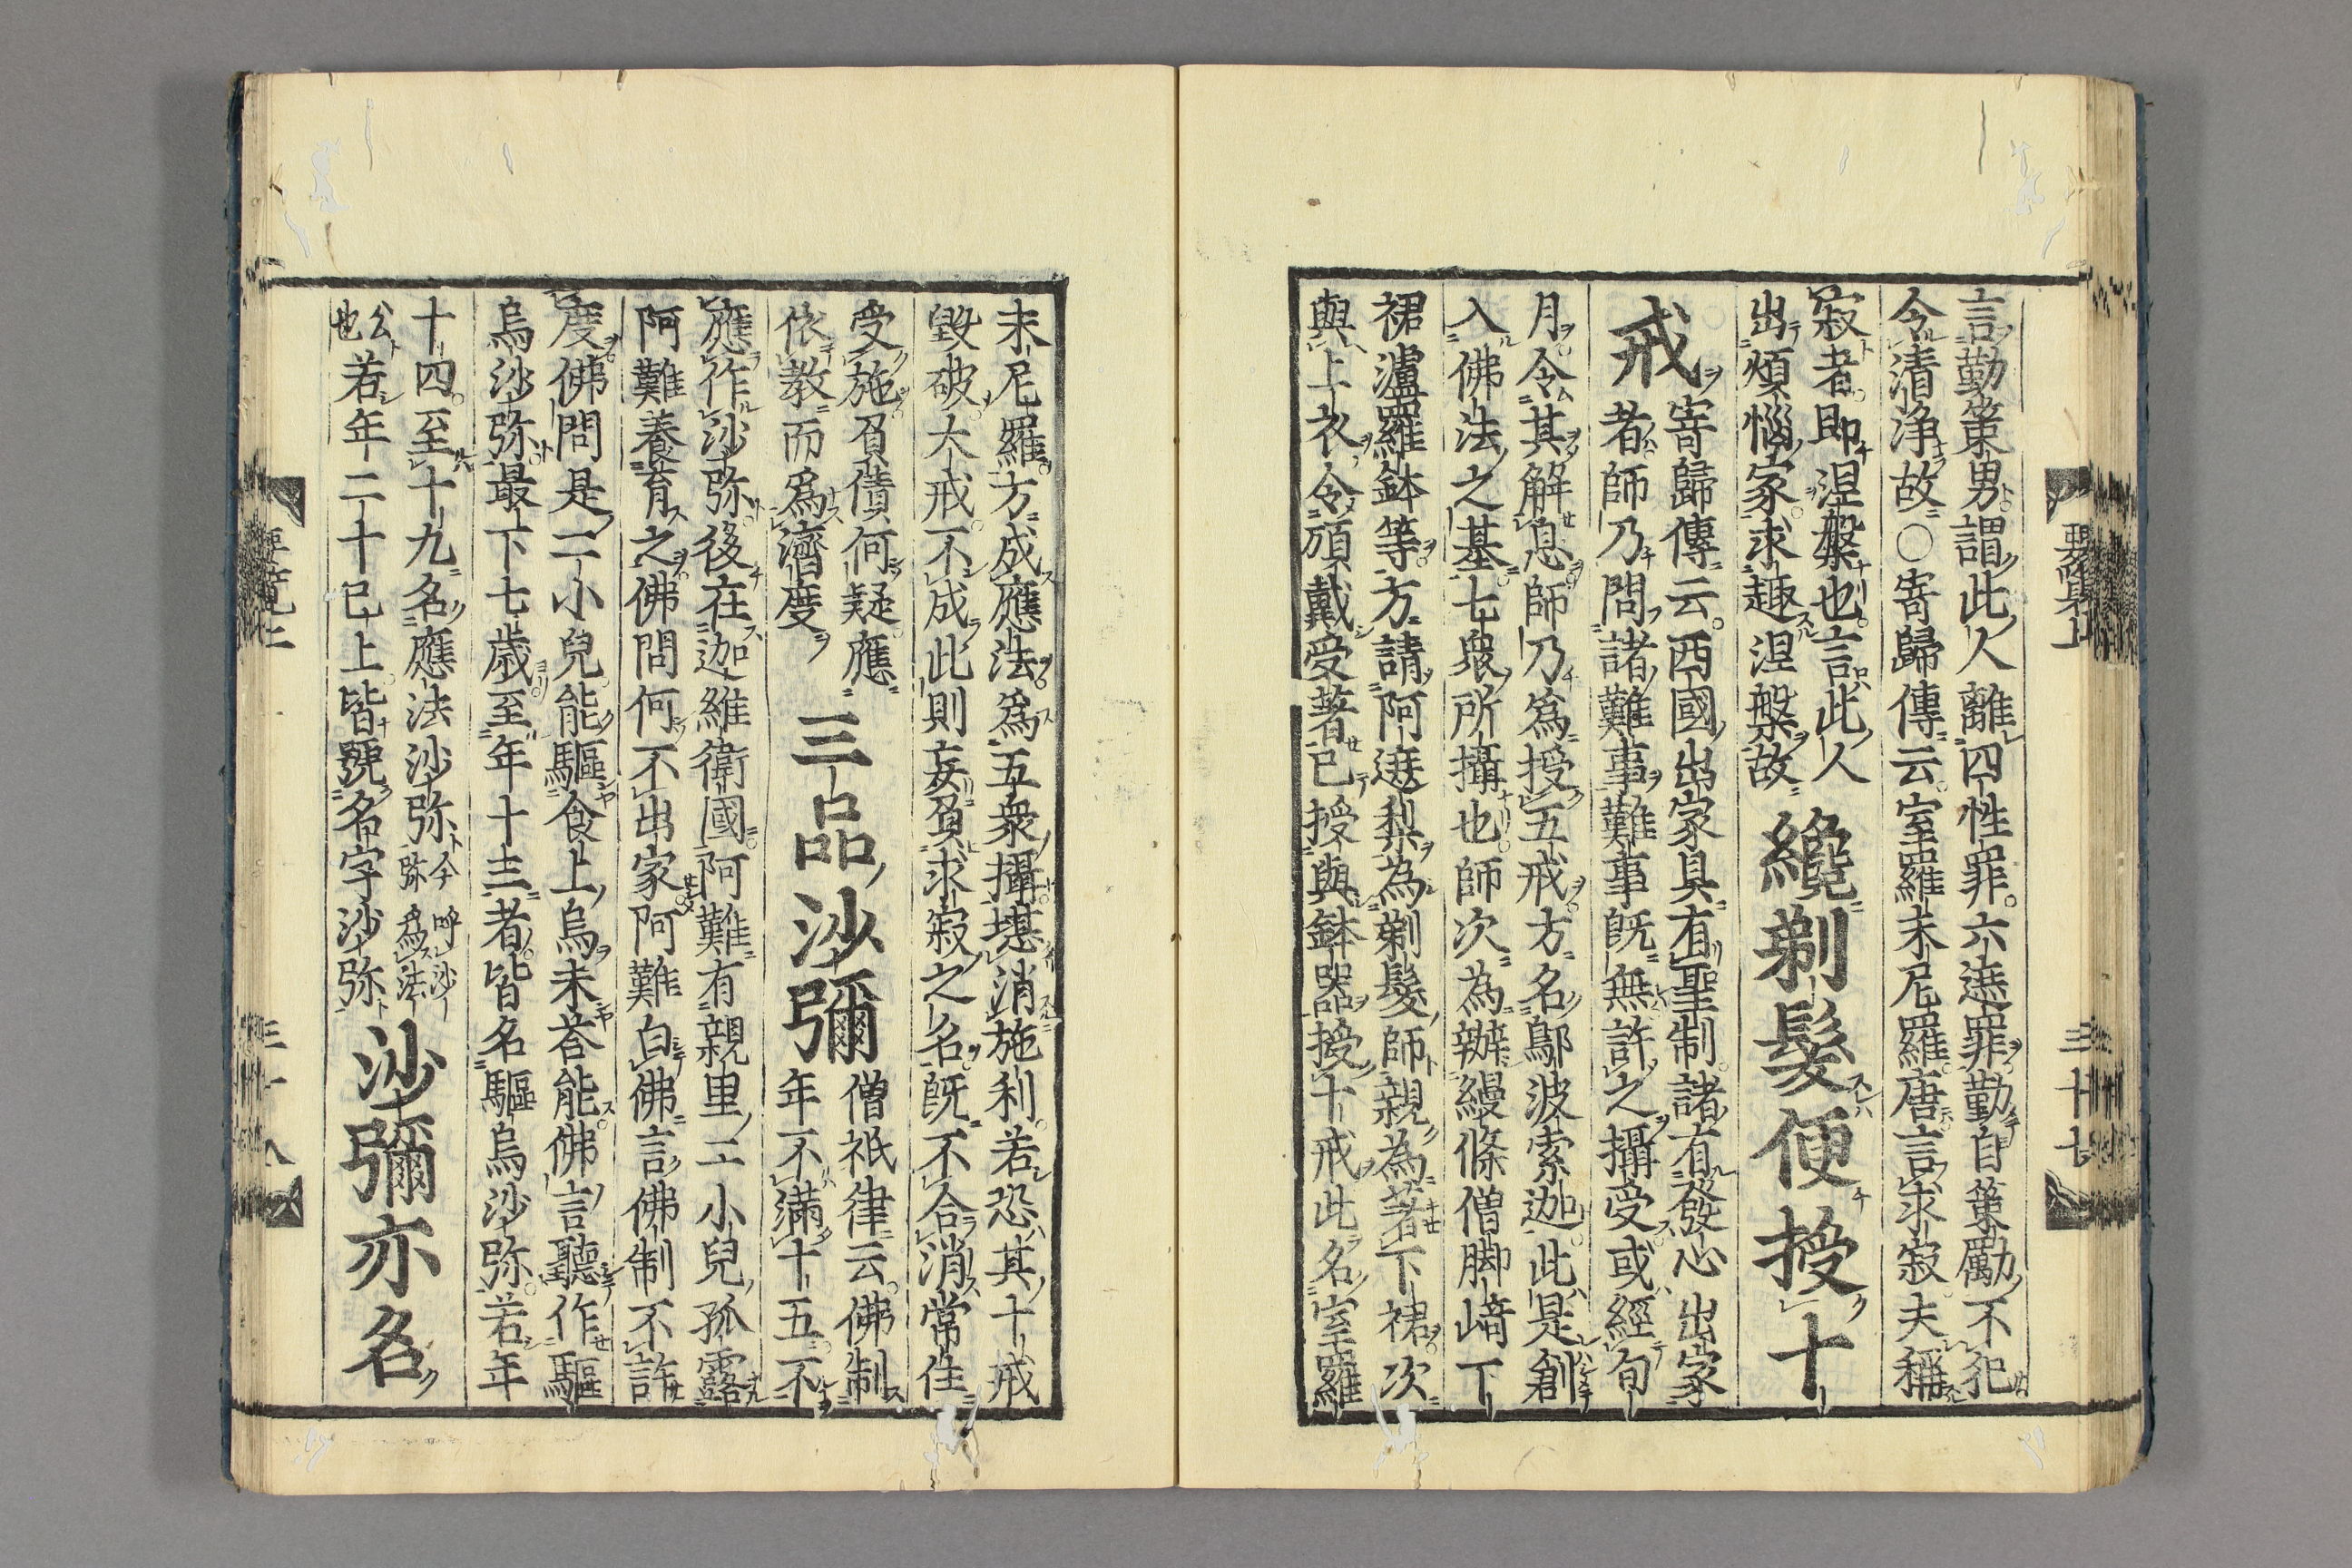 要覽上
三十七
言勤策男謂此人離四性罪六遮罪勤自策勵不犯
令清淨故○寄歸傳云室羅末尼羅唐言求寂夫稱
寂者即涅槃也言此人
出煩惱家求趣涅槃故
纔剃髮便授十
戒
寄歸傳云西國出家具有聖制諸有發心出家
者師乃問諸難事難事既無許之攝受或經旬
月令其解息師乃爲授五戒方名鄔波索迦此是創
入佛法之基七衆所攝也師次為辦縵條僧脚崎下
裙瀘羅鉢等方請阿遮梨為剃髮師親為著下裙次
與上衣令頂戴受著已授與鉢器授十戒此名室羅
末尼羅方成應法爲五衆攝堪消施利若恐其十戒
毀破大戒不成此則妄負求寂之名既不合消常住
受施負債何疑應
依教而爲濟度
三品沙彌
僧祇律云佛制
年不滿十五不
應作沙弥後在迦維衛國阿難有親里二小兒孤露
阿難養育之佛問何不出家阿難白佛言佛制不許
度佛問是二小兒能驅食上烏未荅能佛言聽作驅
烏沙弥最下七歲至年十三者皆名驅烏沙弥若年
十四至十九名應法沙弥
今呼沙
弥爲法
公
也
若年二十已上皆號名字沙弥
沙彌亦名